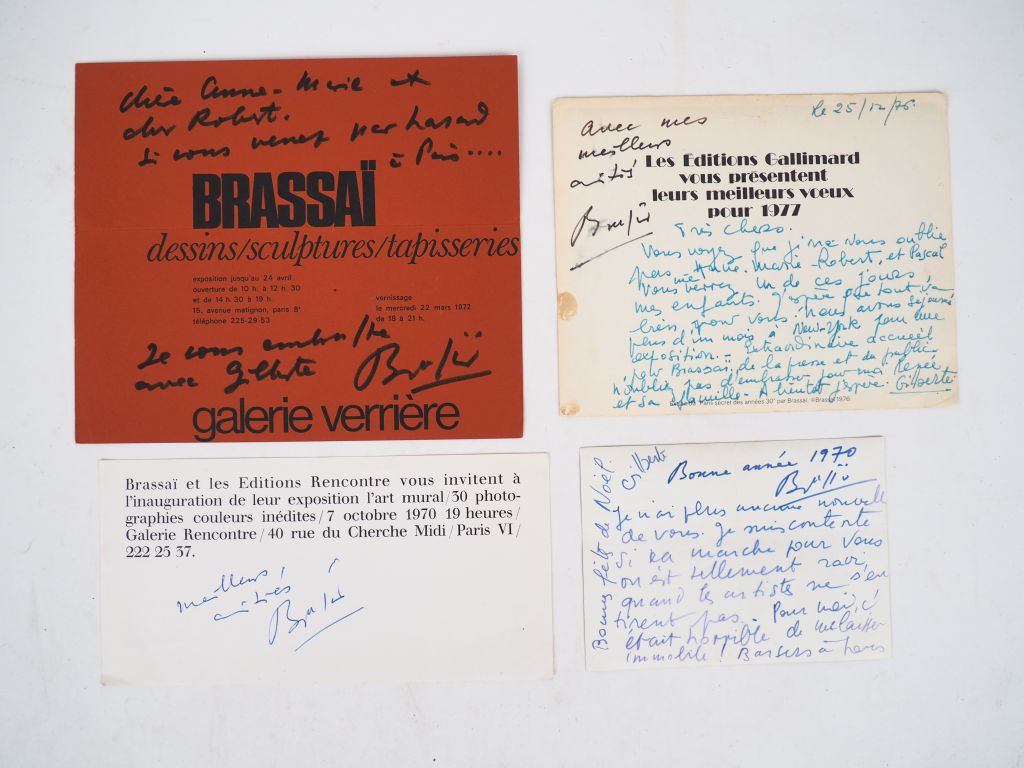 chère Anne-Marie et
cher Robert.
Si vous venez par hasard
à Paris....
BRASSAÏ
dessins/sculptures/tapisseries
exposition jusqu'au 24 avril
ouverture de 10 h. à 12 h. 30
et de 14 h. 30 à 19 h.
15, avenue matignon, paris 8e
téléphone 225-29-53
vernissage
le mercredi 22 mars 1972
de 18 à 21 h.
Je vous embrasse
avec Gilberte Brassaï
galerie verrière
Le 25/12/76.
Avec mes
meilleurs
amitiés
Brassaï
Les Editions Gallimard
vous présentent
leurs meilleurs vœux
pour 1977
Très chers.
Vous voyez que je ne vous oublie
pas même Anne-Marie-Robert, et Pascal
Vous verrez un de ces jours
mes enfants. J'espère que tout va
bien pour vous. Nous avons séjourné
plus d'un mois à New-York pour une
exposition. - Extraordinaire accueil
pour Brassaï, de la presse et du public
N'oubliez pas d'embrasser pour moi Renée
et sa famille - A bientôt j'espère. Gilberte
"Paris secret des années 30" par Brassaï, ©Brassaï 1976.
Brassaï et les Editions Rencontre vous invitent à
l'inauguration de leur exposition l'art mural/30 photo-
graphies couleurs inédites/7 octobre 1970 19 heures/
Galerie Rencontre/40 rue du Cherche Midi/Paris VI/
222 25 37.
meilleurs
amitiés
Brassaï
Bonne année 1970
Brassaï
Je n'ai plus aucune nouvelle
de vous. Je suis contente
Si ça marche pour vous
on est tellement ravi,
quand les artistes ne s'en
tirent pas. - Pour moi, c'
était horrible de me laisser
immobile! Baisers à tous
Bonnes fêtes de Noël.
Gilberte